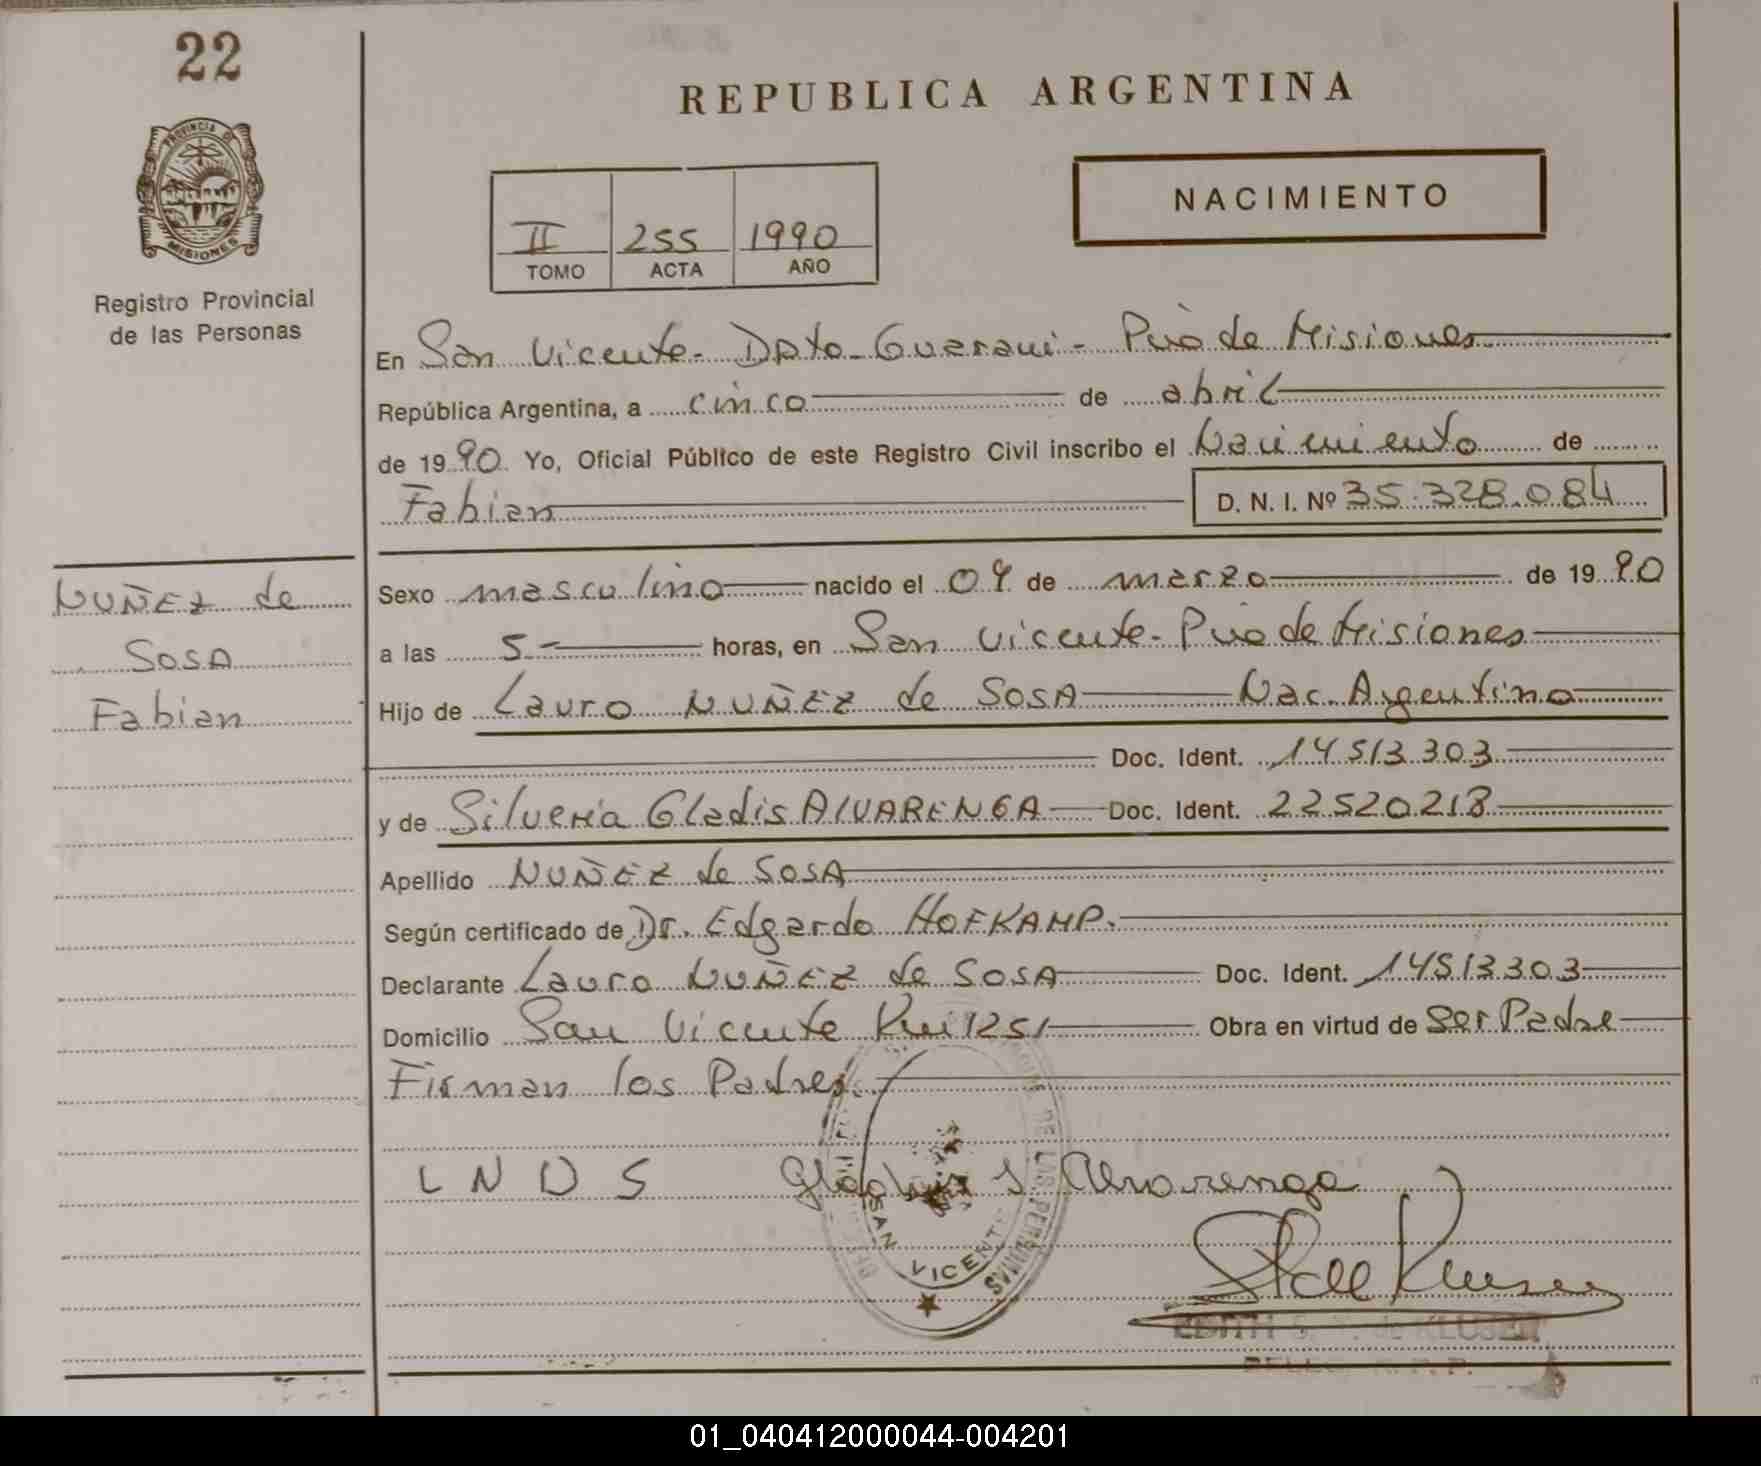 22
PROVINCIA DE
MISIONES
Registro Provincial
de las Personas
REPUBLICA ARGENTINA
II 255 1990
TOMO ACTA AÑO
NACIMIENTO
En San Vicente - Dpto - Guarani - Pcia de Misiones
República Argentina, a cinco de abril
de 1990 Yo, Oficial Público de este Registro Civil inscribo el Nacimiento de
Fabian D. N. I. Nº 35.328.084
NUÑEZ de
SOSA
Fabian
Sexo masculino nacido el 09 de marzo de 1990
a las 5 horas, en San Vicente - Pcia de Misiones
Hijo de Lauro NUÑEZ de SOSA Nac. Argentino
Doc. Ident. 14513303
y de Silveria Gladis ALVARENGA Doc. Ident. 22520218
Apellido NUÑEZ de SOSA
Según certificado de Dr. Edgardo HOFKAMP.
Declarante Lauro NUÑEZ de SOSA Doc. Ident. 14513303
Domicilio San Vicente Km 1251 Obra en virtud de Ser Padre
Firman los Padres.
L N D S S Alvarenga
DE LAS PERSONAS
SAN VICENTE
EDITH S. de KLUSER
R. P. P.
01_040412000044-004201